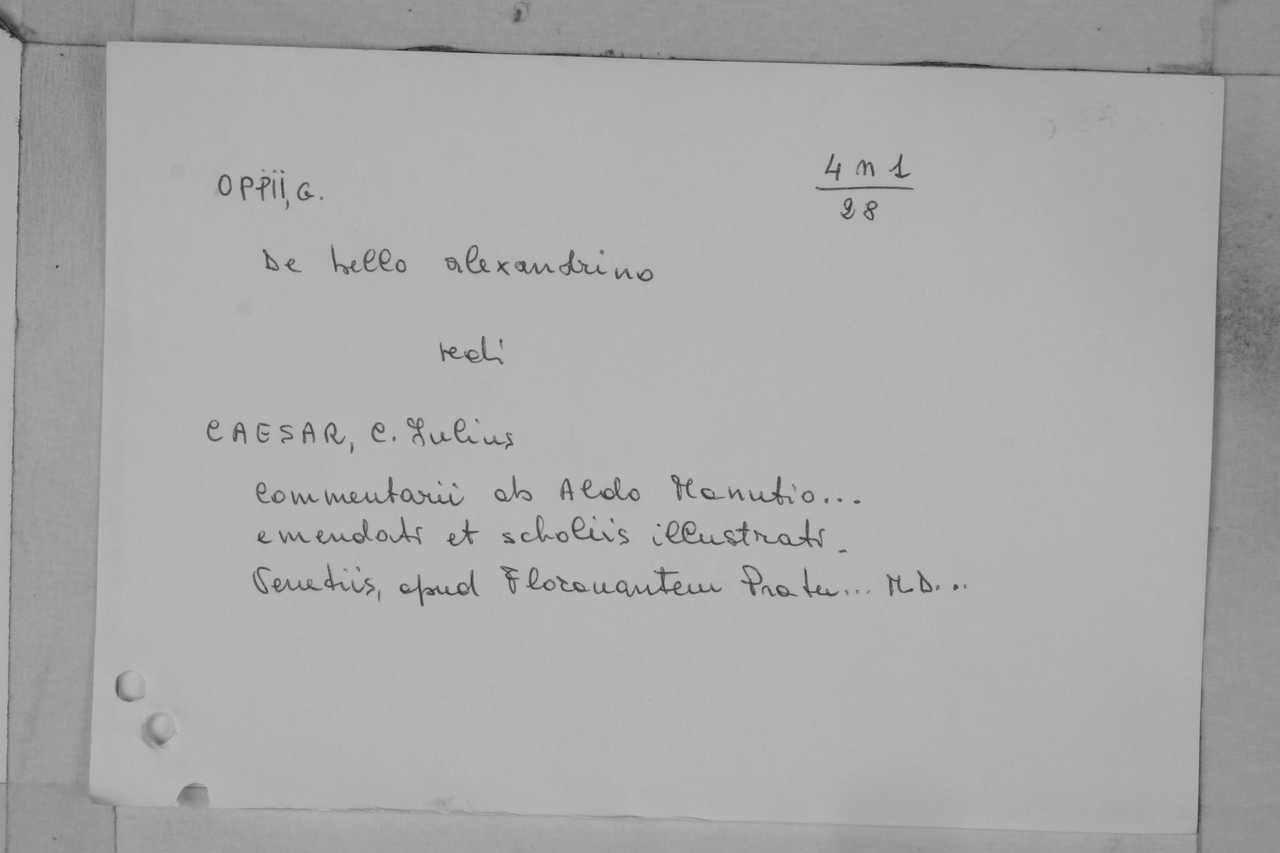 OPPII, G.
4 n 1
28
De bello alexandrino
vedi
CAESAR, C. Iulius
Commentarii ab Aldo Manutio...
emendati et scholiis illustrati.
Venetiis, apud Florauantem Prata... MD...